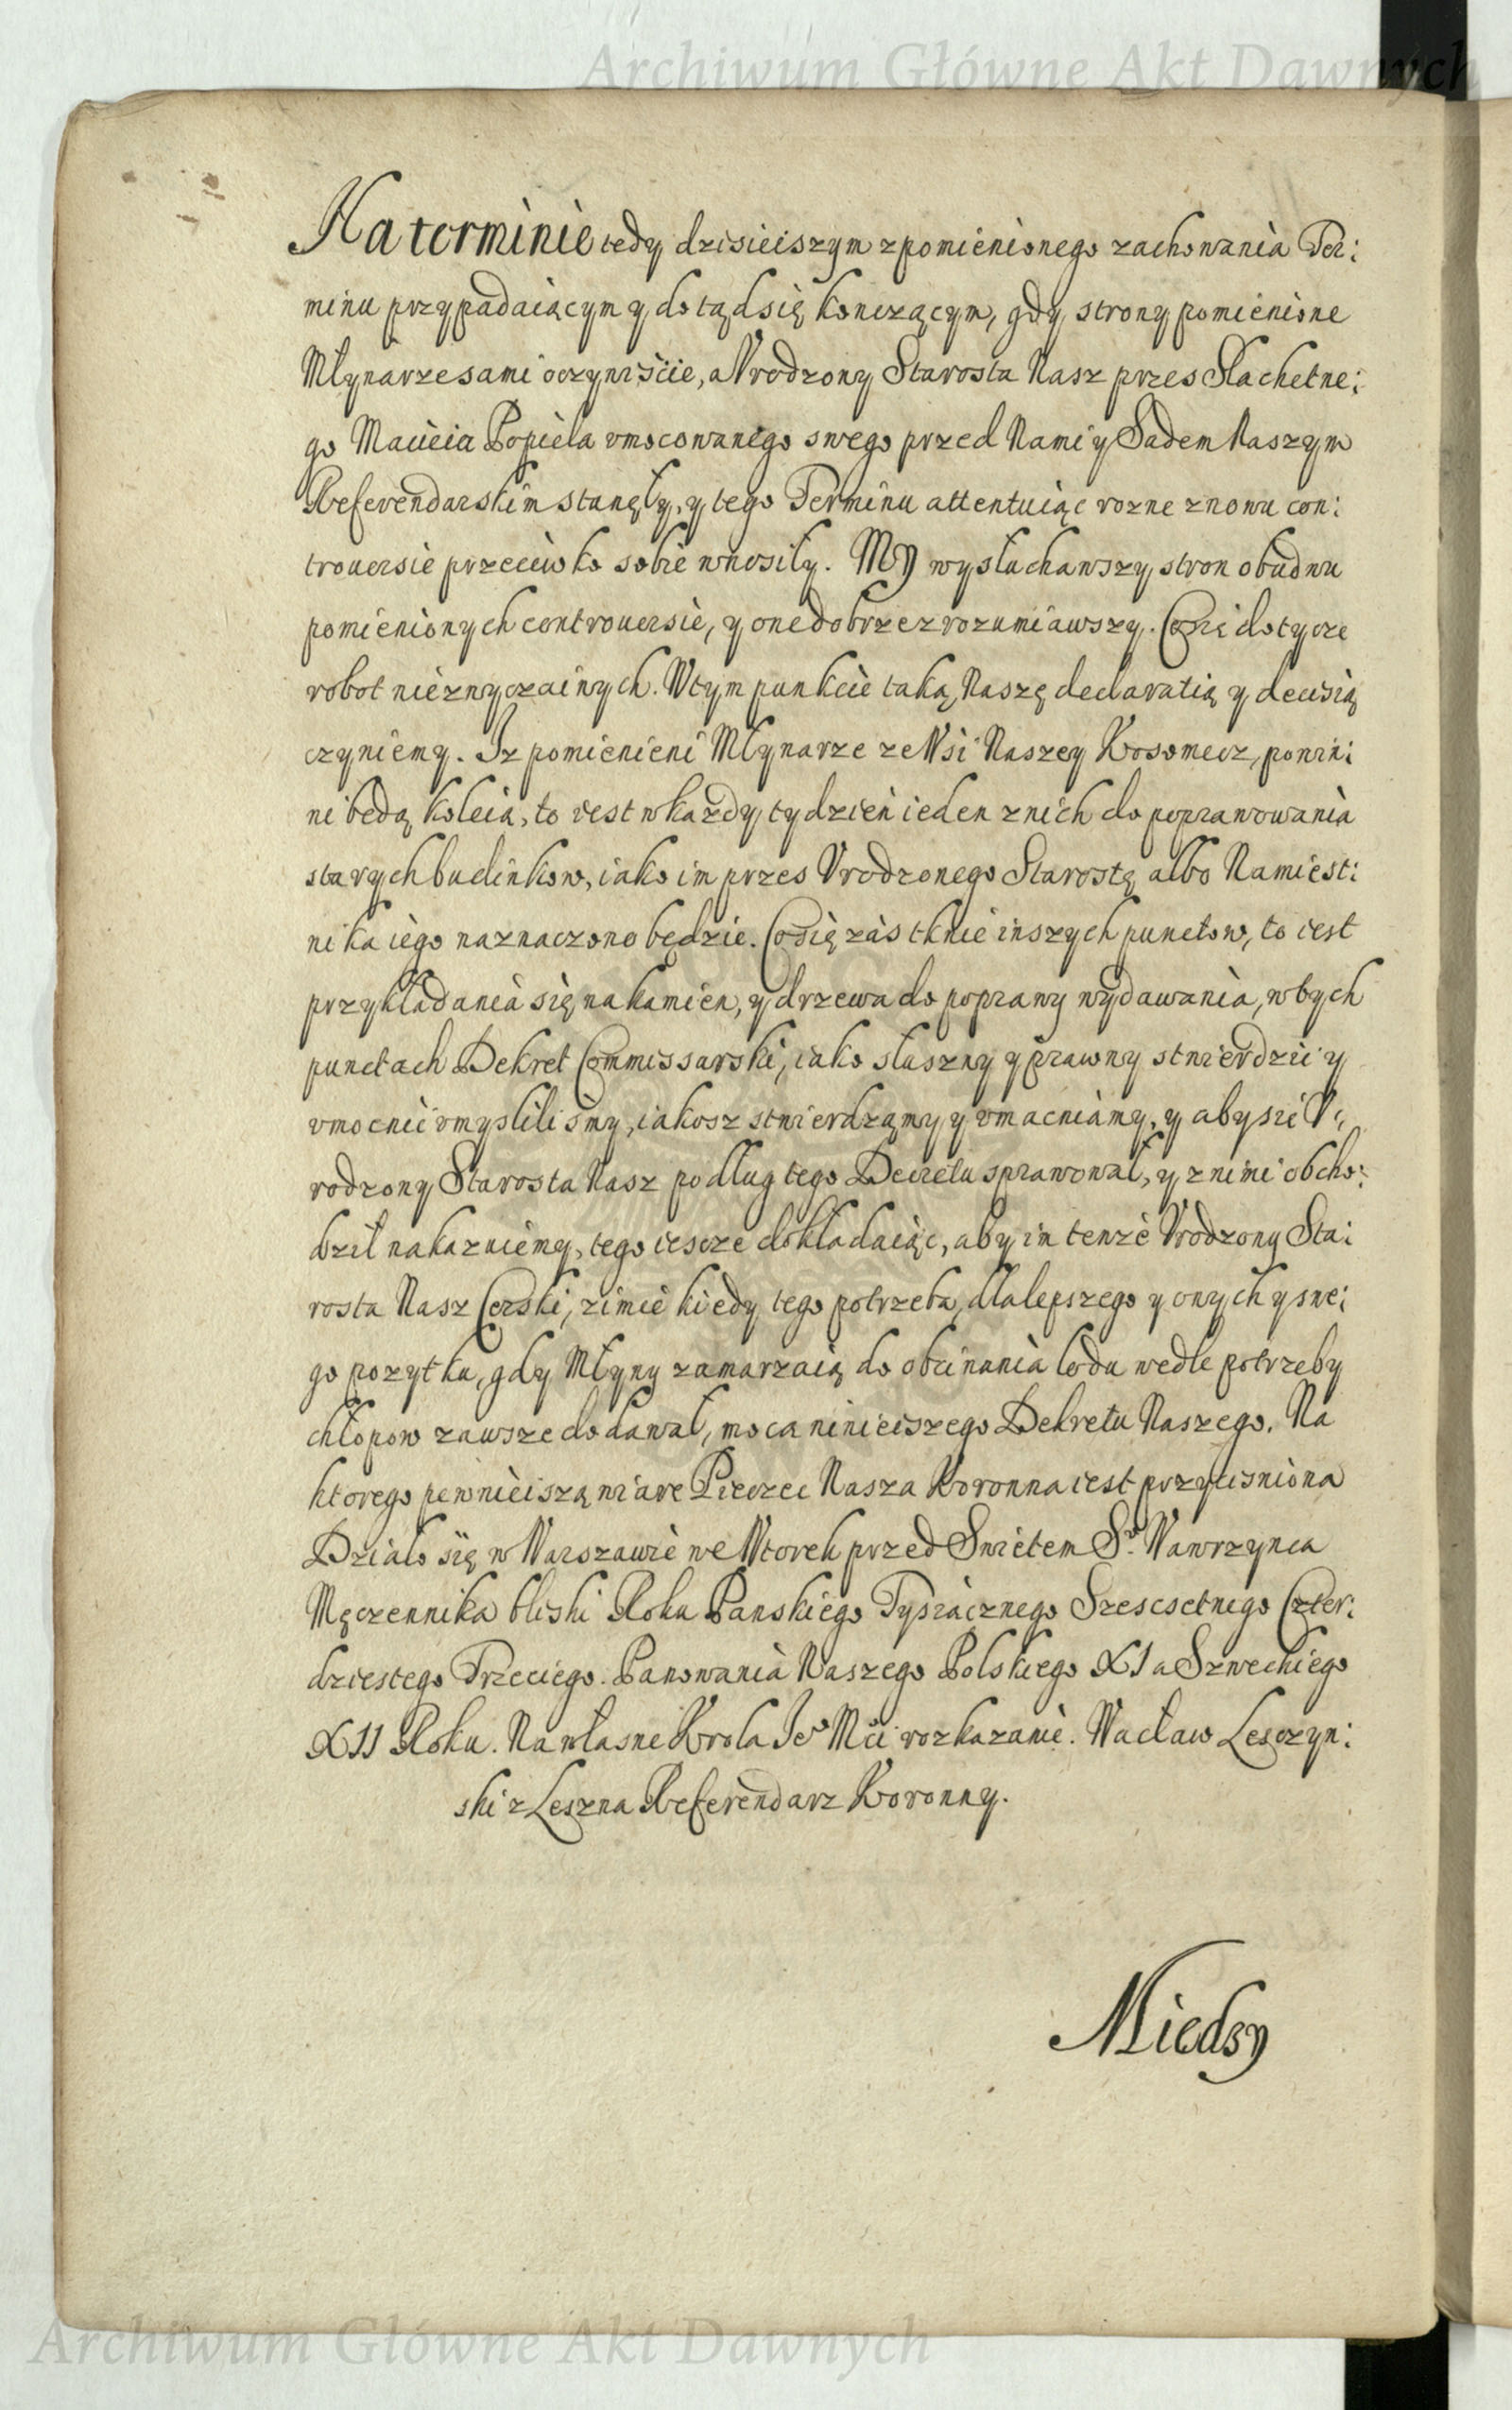 Archiwum Główne Akt Dawnych
Na terminie tedy dzisieiszym z pomienionego zachowania Ter:
minu przypadaiącym y dotąd się konczącym, gdy strony pomienione
Młynarze sami oczywiście, a Vrodzony Starosta Nasz przes Slachetne:
go Macieia Popiela vmocowanego swego przed Nami y Sadem Naszym
Referendarskim stanęły, y tego Terminu attentuiąc rozne znowu con:
trouersie przeciwko sobie wnosiły. My wysłuchawszy stron obudwu
pomienionych controuersie, y one dobrze zrozumiawszy. Co się dotycze
robot niezwyczainych. W tym punkcie taką Naszę declaratią y decisią
czyniemy. Iz pomienieni Młynarze ze Wsi Naszey Kosomecz, powin:
ni będą koleią, to iest w kazdy tydzień ieden z nich do poprawowania
starych budinkow, iako im przes Vrodzonego Starostę albo Namiest:
nika iego naznaczono będzie. Co się zás tknie inszych punctow, to iest
przykładania się na kamien, y drzewa do poprawy wydawania, w tych
punctach Dekret Commissarski, iako słuszny y prawny stwierdzic y
vmocnić vmyslilismy, iakosz stwierdzamy y vmacniamy, y aby sie V:
rodzony Starosta Nasz podług tego Decretu sprawował, y z nimi obcho:
dził nakazuiemy, tego iescze dokładaiąc, aby im tenze Vrodzony Sta:
rosta Nasz Czerski, zimie kiedy tego potrzeba, dla lepszego y onych y swe:
go pozytku, gdy Młyny zamarzaią do obcinania lodu wedle potrzeby
chłopow zawsze dodawał, moca ninieiszego Dekretu Naszego. Na
ktorego pewnieiszą wiare Pieczec Nasza Koronna iest przycisniona
Działo się w Warszawie we Wtorek przed Swietem S<sup>o</sup>. Wawrzynca
Męczennika bliski Roku Panskiego Tysiącznego Szescsetnego Czter:
dziestego Trzeciego. Panowania Naszego Polskiego XI a Szweckiego
XII Roku. Na własne Krola Je<sup>o</sup> Mci rozkazanie. Wacław Lesczyn:
ski z Leszna Referendarz Koronny.
Miedzy
Archiwum Główne Akt Dawnych